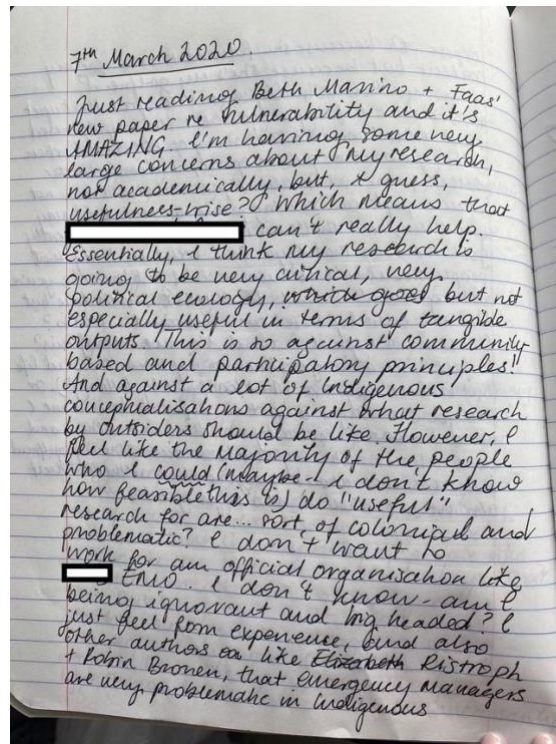 7TH March 2020.
Just reading Beth Marino + Faas'
new paper re vulnerability and it's
AMAZING. I'm having some very
large concerns about my research,
not academically, but, I guess,
usefulness-wise? Which means that
can't really help.
Essentially, I think my research is
going to be very critical, very
political ecology, which goes but not
especially useful in terms of tangible
outputs. This is so against community
based and participatory principles!!
And against a lot of Indigenous
conceptualisations against what research
by outsiders should be like. However, I
feel like the majority of the people
who I could (maybe - I don't know
how feasible this is) do "useful"
research for are... sort of colonial and
problematic? I don't want to
work for an official organisation like
EMO. I don't know - am I
being ignorant and big headed? I
just feel from experience, and also
other authors on like Elizabeth Ristroph
+ Robin Bronen, that emergency managers
are very problematic in Indigenous